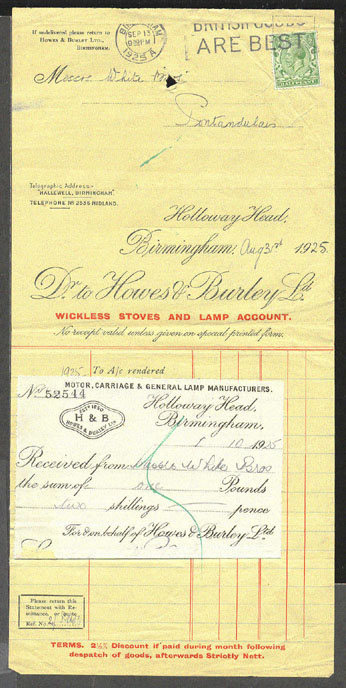 If undelivered please return to
HOWES & BURLEY LTD.,
BIRMINGHAM.
BIRMINGHAM
SEP 13
1925
BRITISH GOODS
ARE BEST
Messrs White Bros
Pontardulais
Telegraphic Address-
"HALLEWELL, BIRMINGHAM."
TELEPHONE Nº 2536 MIDLAND.
Holloway Head,
Birmingham, Aug 31st 1925.
Dr. to Howes & Burley Ltd
WICKLESS STOVES AND LAMP ACCOUNT.
No receipt valid unless given on special printed form.
1925 To A/c rendered
MOTOR, CARRIAGE & GENERAL LAMP MANUFACTURERS.
No. 52544
Holloway Head,
ESTD 1890
H & B
HOWES & BURLEY LTD
Birmingham,
1 10 1925
Received from Messrs White Bros
the sum of one Pounds
two shillings pence
For & on behalf of Howes & Burley Ltd
Please return this
Statement with Re-
mittance, or quote
Ref. No.
TERMS. 2½% Discount if paid during month following
despatch of goods, afterwards Strictly Nett.